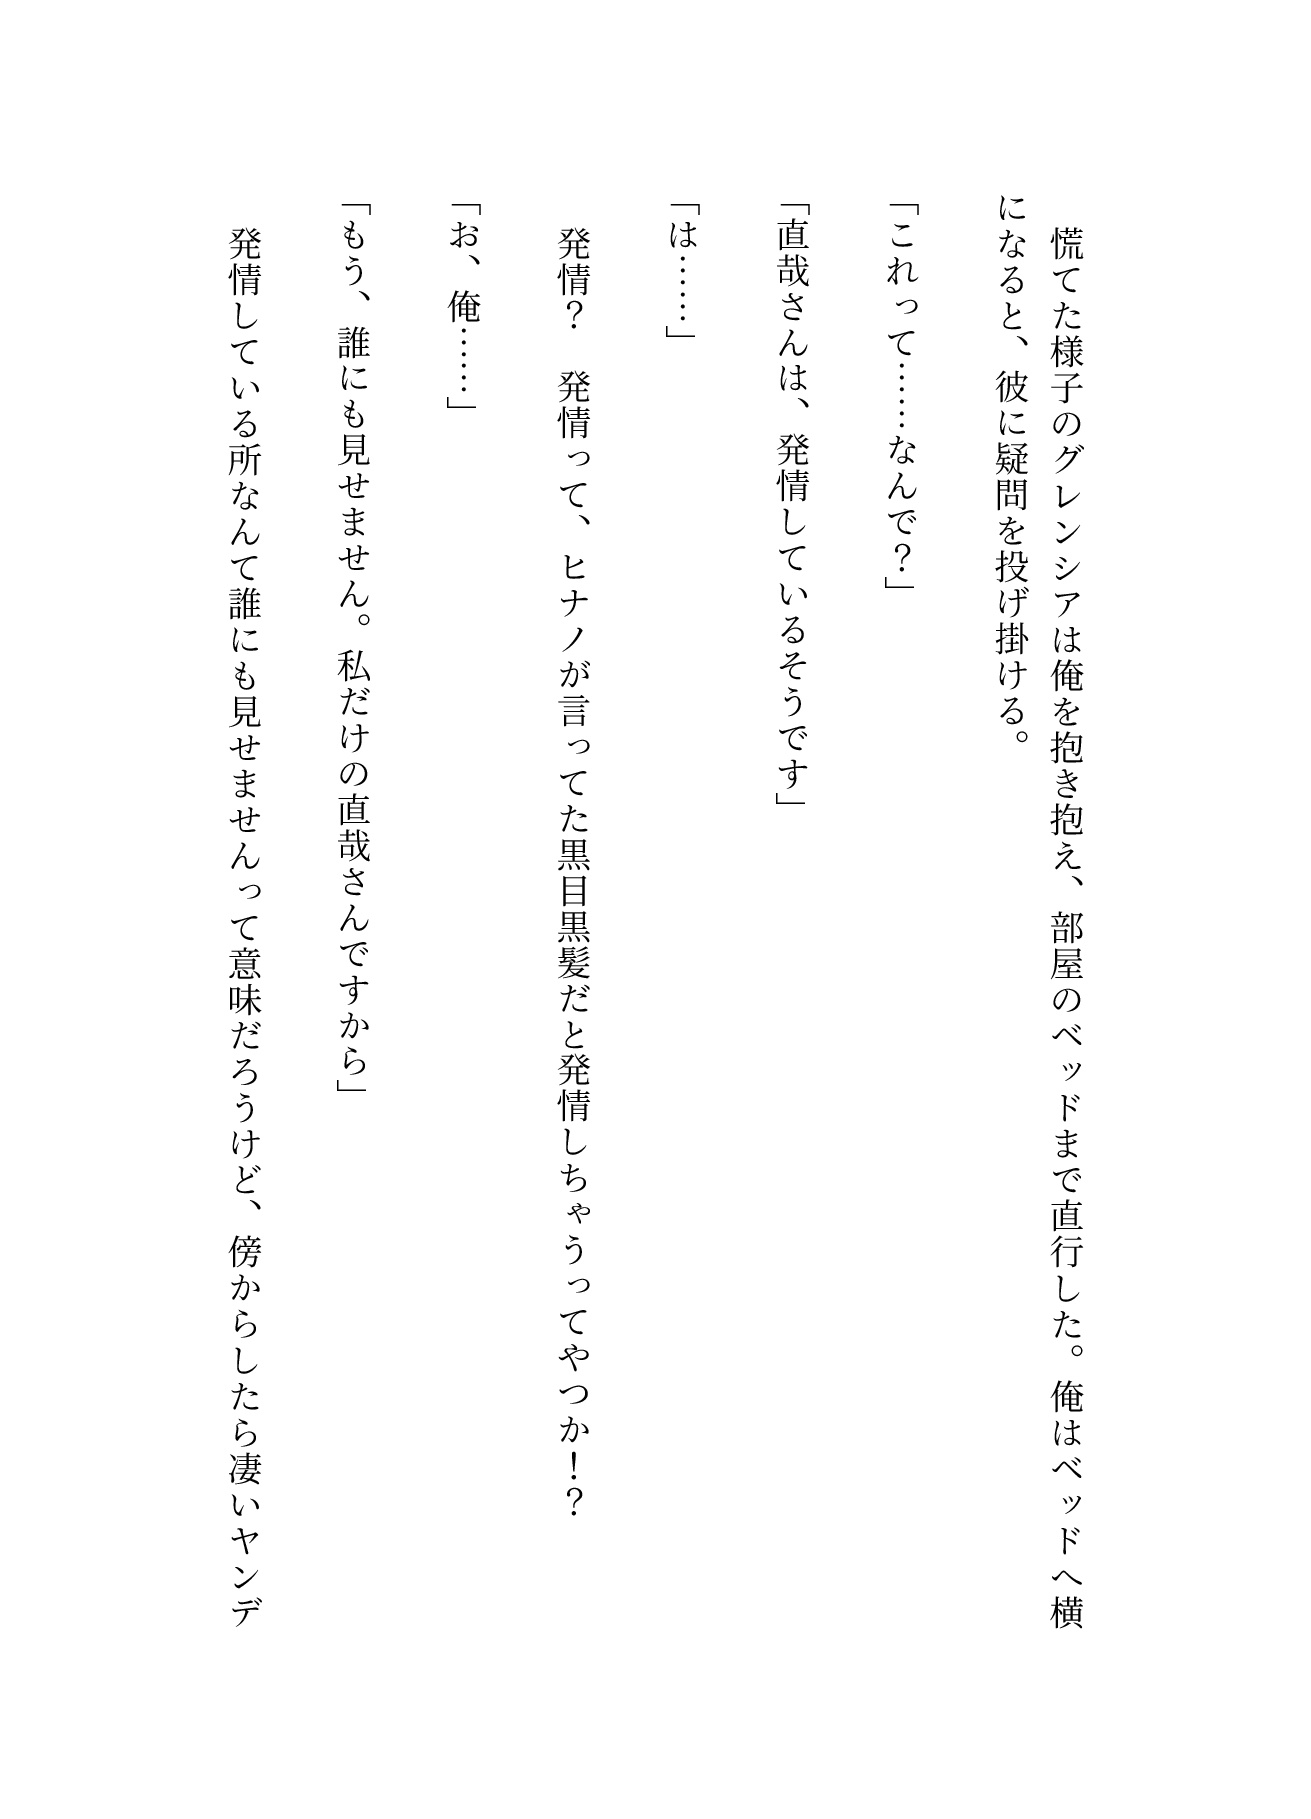 慌てた様子のグレンシアは俺を抱き抱え、部屋のベッドまで直行した。俺はベッドへ横
になると、彼に疑問を投げ掛ける。
「これって……なんで？」
「直哉さんは、発情しているそうです」
「は……」
発情？　発情って、ヒナノが言ってた黒目黒髪だと発情しちゃうってやつか！？
「お、俺……」
「もう、誰にも見せません。私だけの直哉さんですから」
発情している所なんて誰にも見せませんって意味だろうけど、傍からしたら凄いヤンデ